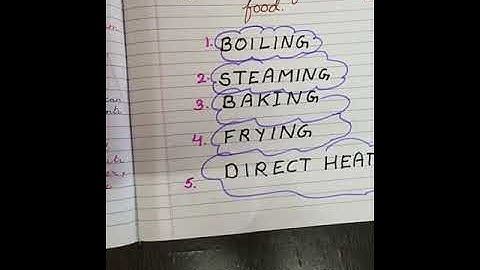 food.
1. BOILING
2. STEAMING
3. BAKING
4. FRYING
5. DIRECT HEAT